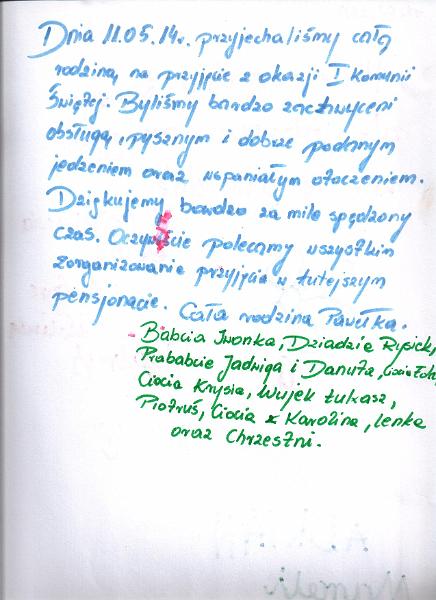 Dnia 11.05.14r. przyjechaliśmy całą
rodziną na przyjęcie z okazji I Komunii
Świętej. Byliśmy bardzo zachwyceni
obsługą, pysznym i dobrze podanym
jedzeniem oraz wspaniałym otoczeniem.
Dziękujemy bardzo za mile spędzony
czas. Oczywiście polecamy wszystkim
zorganizowanie przyjęcia w tutejszym
pensjonacie. Cała rodzina Pawełka.
Babcia Iwonka, Dziadzio Rysiek,
Prababcie Jadwiga i Danuta, Ciocia
Ciocia Krysia, Wujek Łukasz,
Piotruś, Ciocia Karolina, Lenka
oraz Chrzestni.